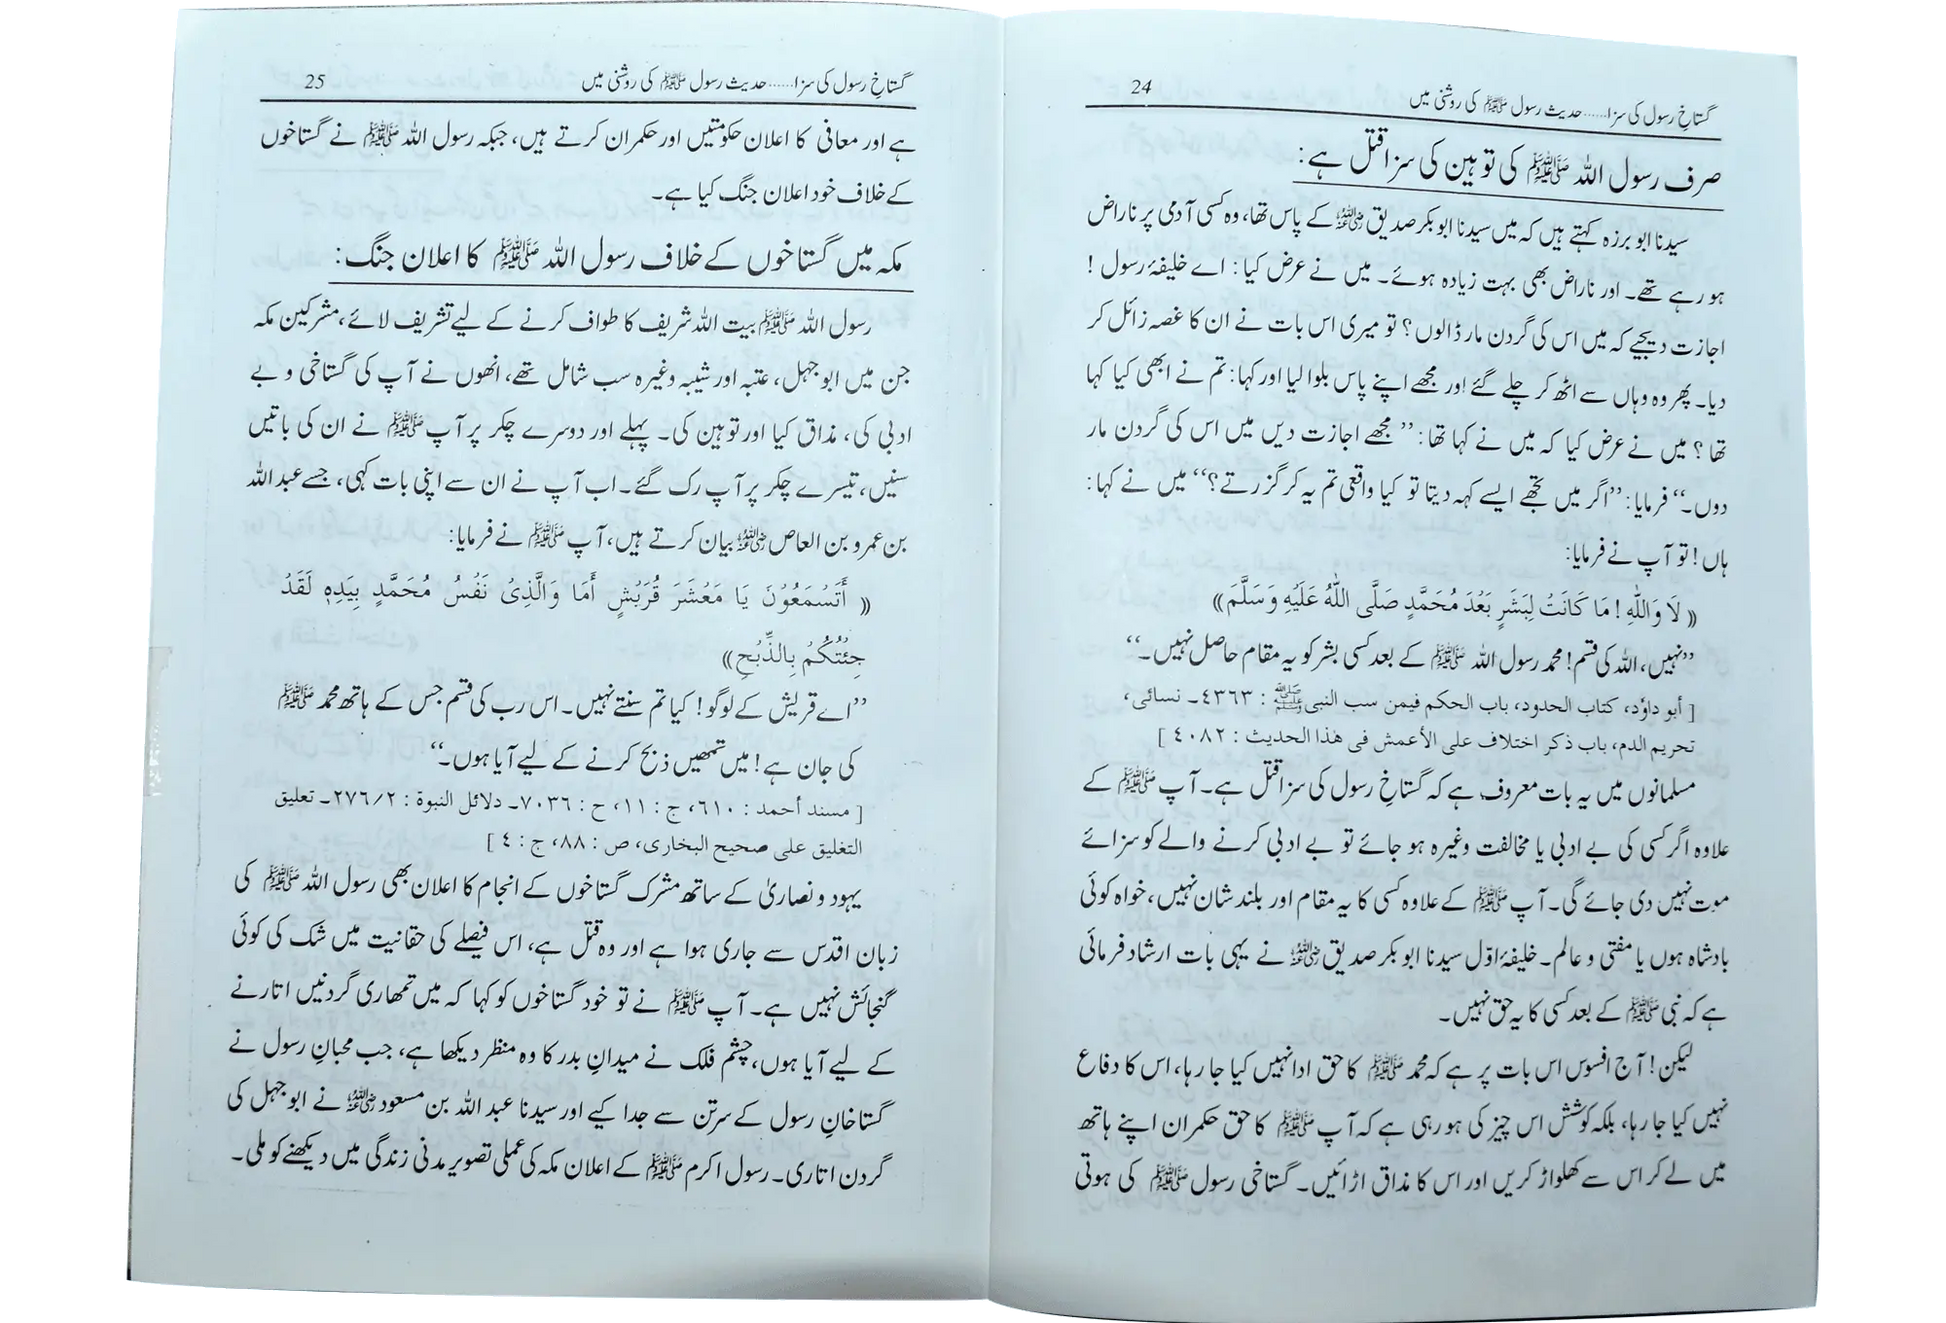 24
گستاخِ رسول کی سزا......حدیث رسول ﷺ کی روشنی میں
صرف رسول اللہ ﷺ کی توہین کی سزا قتل ہے:
سیدنا ابو برزہ کہتے ہیں کہ میں سیدنا ابو بکر صدیق رضی اللہ عنہ کے پاس تھا، وہ کسی آدمی پر ناراض
ہو رہے تھے۔ اور ناراض بھی بہت زیادہ ہوئے۔ میں نے عرض کیا: اے خلیفۂ رسول !
اجازت دیجیے کہ میں اس کی گردن مار ڈالوں؟ تو میری اس بات نے ان کا غصہ زائل کر
دیا۔ پھر وہ وہاں سے اٹھ کر چلے گئے اور مجھے اپنے پاس بلوا لیا اور کہا: تم نے ابھی کیا کہا
تھا ؟ میں نے عرض کیا کہ میں نے کہا تھا: ’’ مجھے اجازت دیں میں اس کی گردن مار
دوں۔‘‘ فرمایا: ’’اگر میں تجھے ایسے کہہ دیتا تو کیا واقعی تم یہ کر گزرتے؟‘‘ میں نے کہا:
ہاں! تو آپ نے فرمایا:
(( لَا وَاللّٰهِ ! مَا كَانَتْ لِبَشَرٍ بَعْدَ مُحَمَّدٍ صَلَّى اللّٰهُ عَلَيْهِ وَسَلَّمَ))
’’نہیں، اللہ کی قسم! محمد رسول اللہ ﷺ کے بعد کسی بشر کو یہ مقام حاصل نہیں۔‘‘
[ أبو داؤد، كتاب الحدود، باب الحكم فيمن سب النبى ﷺ : ٤٣٦٣۔ نسائى،
تحريم الدم، باب ذكر اختلاف على الأعمش فى هذا الحديث : ٤٠٨٢ ]
مسلمانوں میں یہ بات معروف ہے کہ گستاخِ رسول کی سزا قتل ہے۔ آپ ﷺ کے
علاوہ اگر کسی کی بے ادبی یا مخالفت وغیرہ ہو جائے تو بے ادبی کرنے والے کو سزائے
موت نہیں دی جائے گی۔ آپ ﷺ کے علاوہ کسی کا یہ مقام اور بلند شان نہیں، خواہ کوئی
بادشاہ ہوں یا مفتی و عالم۔ خلیفۂ اوّل سیدنا ابو بکر صدیق رضی اللہ عنہ نے یہی بات ارشاد فرمائی
ہے کہ نبی ﷺ کے بعد کسی کا یہ حق نہیں۔
لیکن! آج افسوس اس بات پر ہے کہ محمد ﷺ کا حق ادا نہیں کیا جا رہا، اس کا دفاع
نہیں کیا جا رہا، بلکہ کوشش اس چیز کی ہو رہی ہے کہ آپ ﷺ کا حق حکمران اپنے ہاتھ
میں لے کر اس سے کھلواڑ کریں اور اس کا مذاق اڑائیں۔ گستاخی رسول ﷺ کی ہوتی
25
گستاخِ رسول کی سزا......حدیث رسول ﷺ کی روشنی میں
ہے اور معافی کا اعلان حکومتیں اور حکمران کرتے ہیں، جبکہ رسول اللہ ﷺ نے گستاخوں
کے خلاف خود اعلان جنگ کیا ہے۔
مکہ میں گستاخوں کے خلاف رسول اللہ ﷺ کا اعلان جنگ:
رسول اللہ ﷺ بیت اللہ شریف کا طواف کرنے کے لیے تشریف لائے، مشرکین مکہ
جن میں ابو جہل، عتبہ اور شیبہ وغیرہ سب شامل تھے، انھوں نے آپ کی گستاخی و بے
ادبی کی، مذاق کیا اور توہین کی۔ پہلے اور دوسرے چکر پر آپ ﷺ نے ان کی باتیں
سنیں، تیسرے چکر پر آپ رک گئے۔ اب آپ نے ان سے اپنی بات کہی، جسے عبد اللہ
بن عمرو بن العاص رضی اللہ عنہ بیان کرتے ہیں، آپ ﷺ نے فرمایا:
(( أَتَسْمَعُوْنَ يَا مَعْشَرَ قُرَيْشٍ أَمَا وَالَّذِىْ نَفْسُ مُحَمَّدٍ بِيَدِهٖ لَقَدْ
جِئْتُكُمْ بِالذِّبْحِ))
’’اے قریش کے لوگو! کیا تم سنتے نہیں۔ اس رب کی قسم جس کے ہاتھ محمد ﷺ
کی جان ہے! میں تمھیں ذبح کرنے کے لیے آیا ہوں۔‘‘
[ مسند أحمد : ٦١٠، ج : ١١، ح : ٧٠٣٦۔ دلائل النبوة : ٢/ ٢٧٦۔ تعليق
التغليق على صحيح البخارى، ص : ٨٨، ج : ٤ ]
یہود و نصاریٰ کے ساتھ مشرک گستاخوں کے انجام کا اعلان بھی رسول اللہ ﷺ کی
زبان اقدس سے جاری ہوا ہے اور وہ قتل ہے، اس فیصلے کی حقانیت میں شک کی کوئی
گنجائش نہیں ہے۔ آپ ﷺ نے تو خود گستاخوں کو کہا کہ میں تمھاری گردنیں اتارنے
کے لیے آیا ہوں، چشم فلک نے میدانِ بدر کا وہ منظر دیکھا ہے، جب محبانِ رسول نے
گستاخانِ رسول کے سر تن سے جدا کیے اور سیدنا عبد اللہ بن مسعود رضی اللہ عنہ نے ابو جہل کی
گردن اتاری۔ رسول اکرم ﷺ کے اعلان مکہ کی عملی تصویر مدنی زندگی میں دیکھنے کو ملی۔